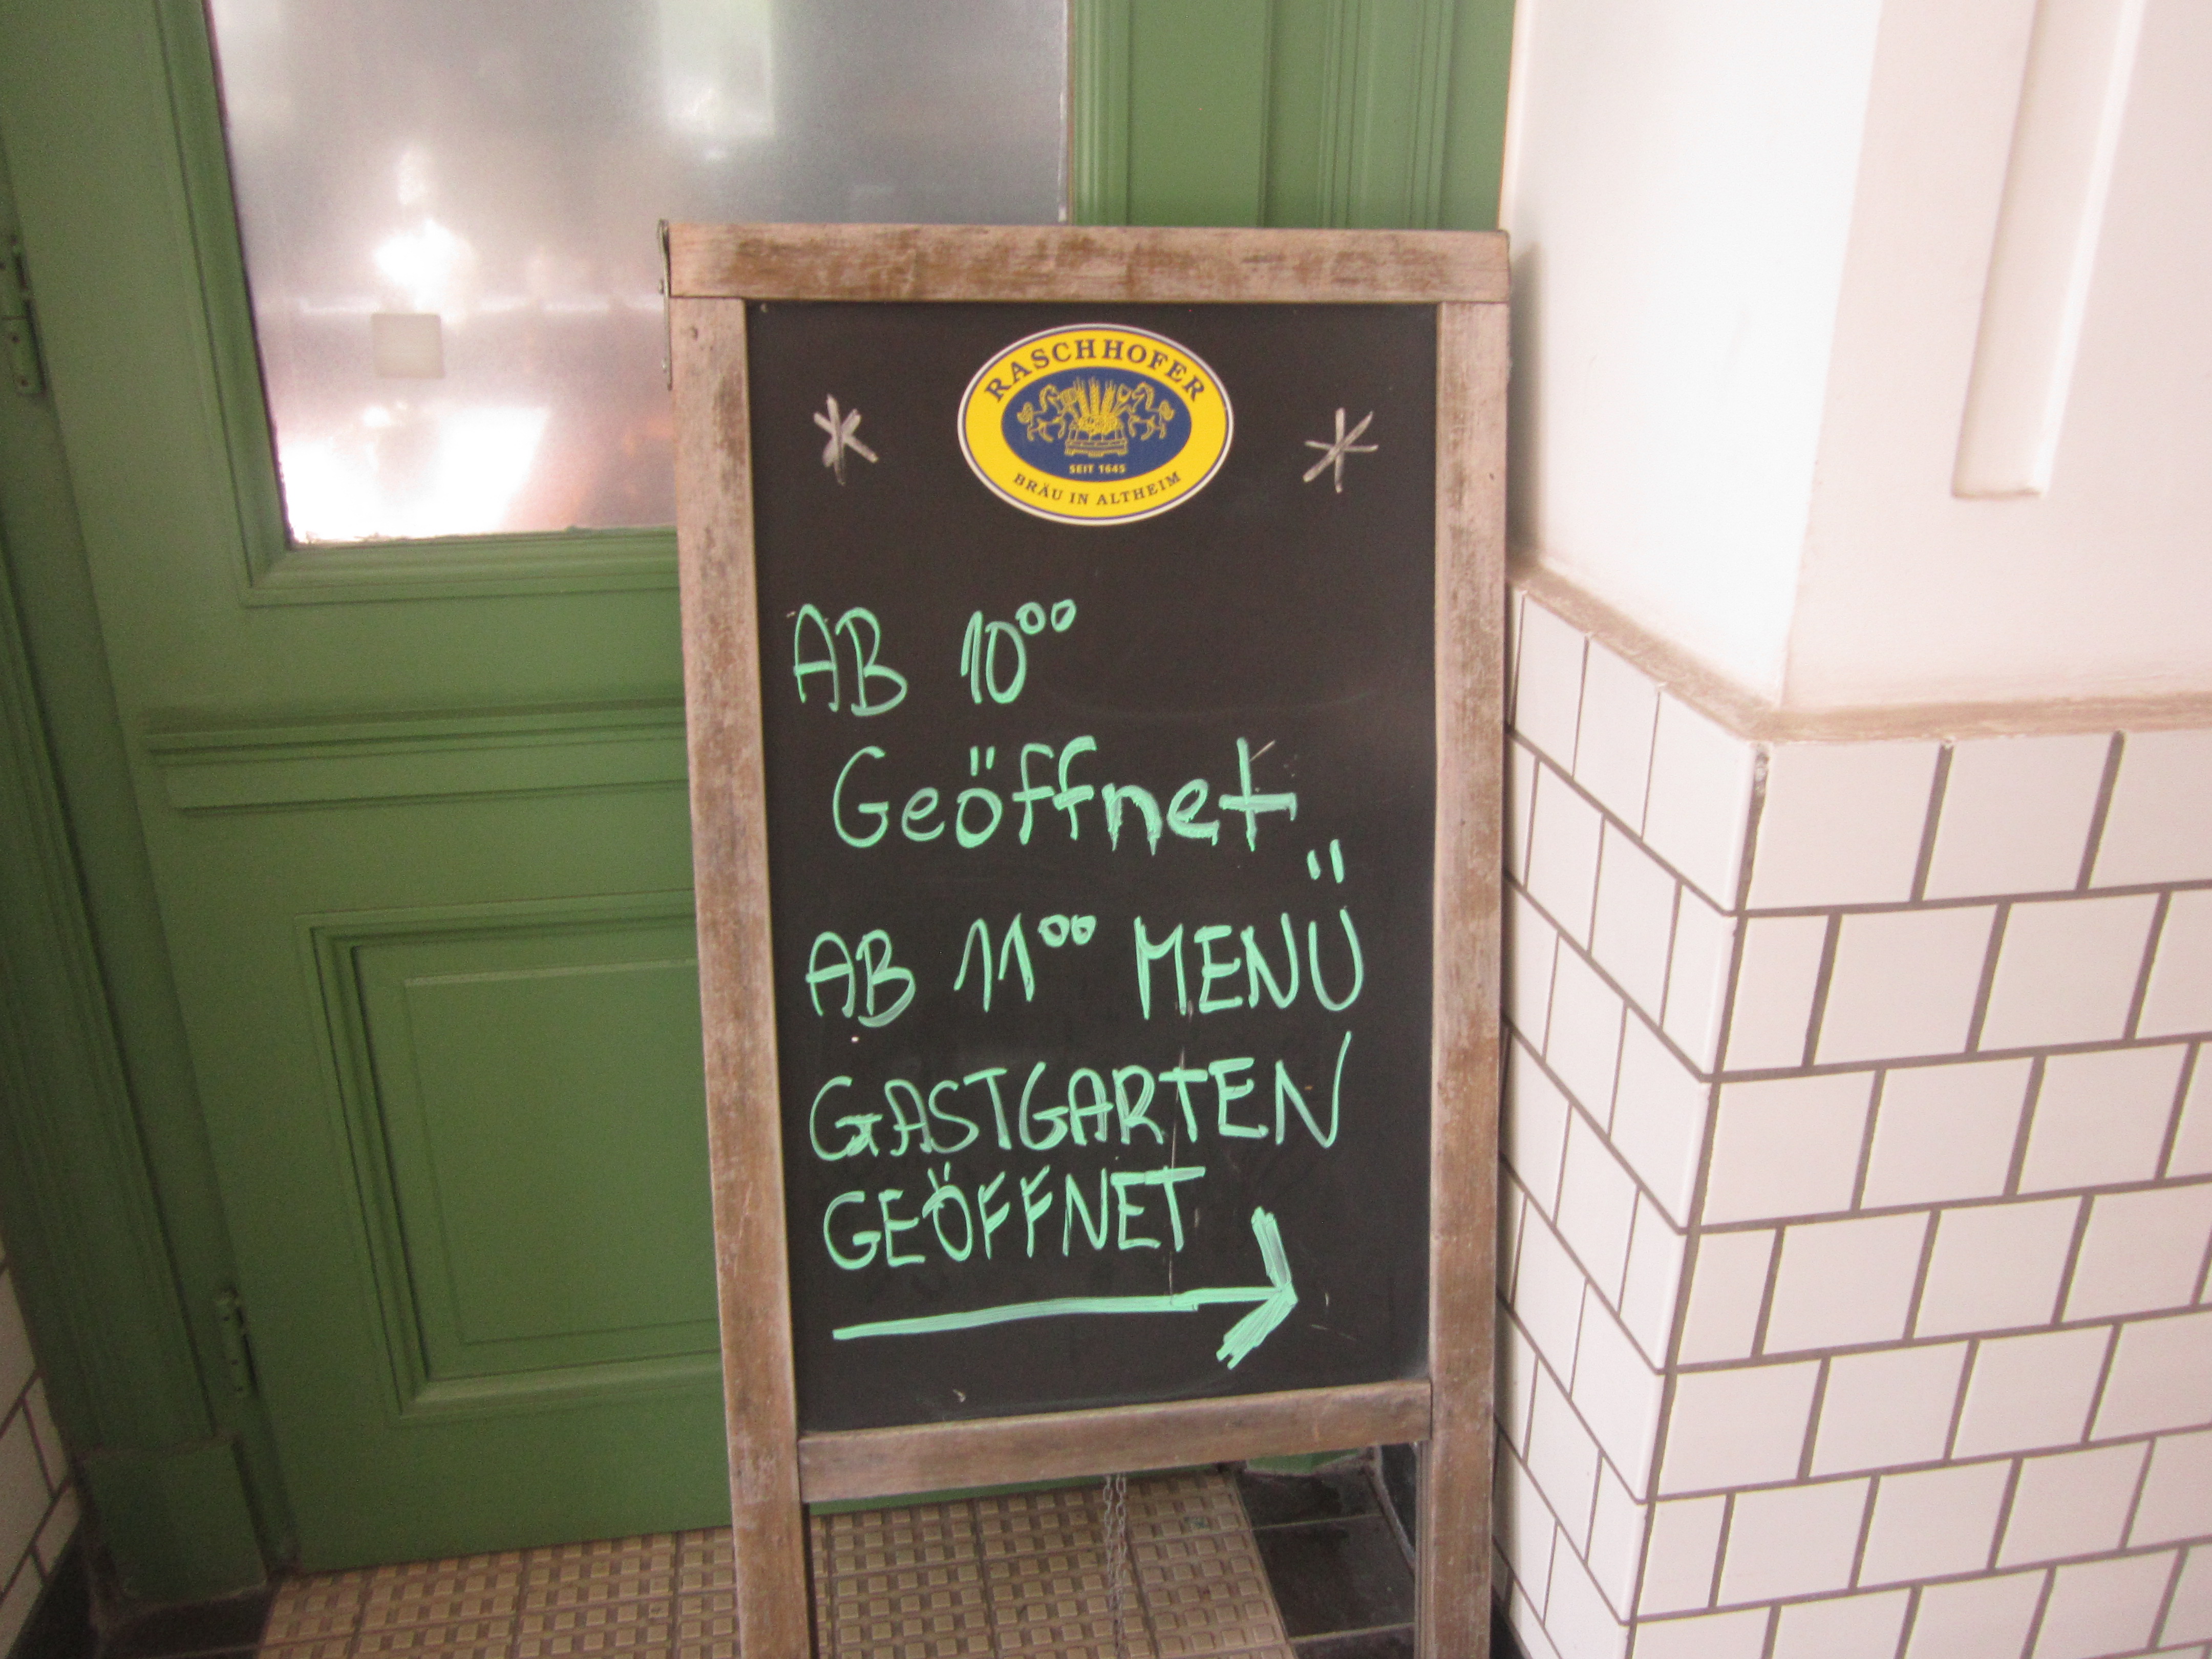 RASCHHOFER
SEIT 1645
BRÄU IN ALTHEIM
AB 10⁰⁰
Geöffnet
AB 11⁰⁰ MENÜ
GASTGARTEN
GEÖFFNET